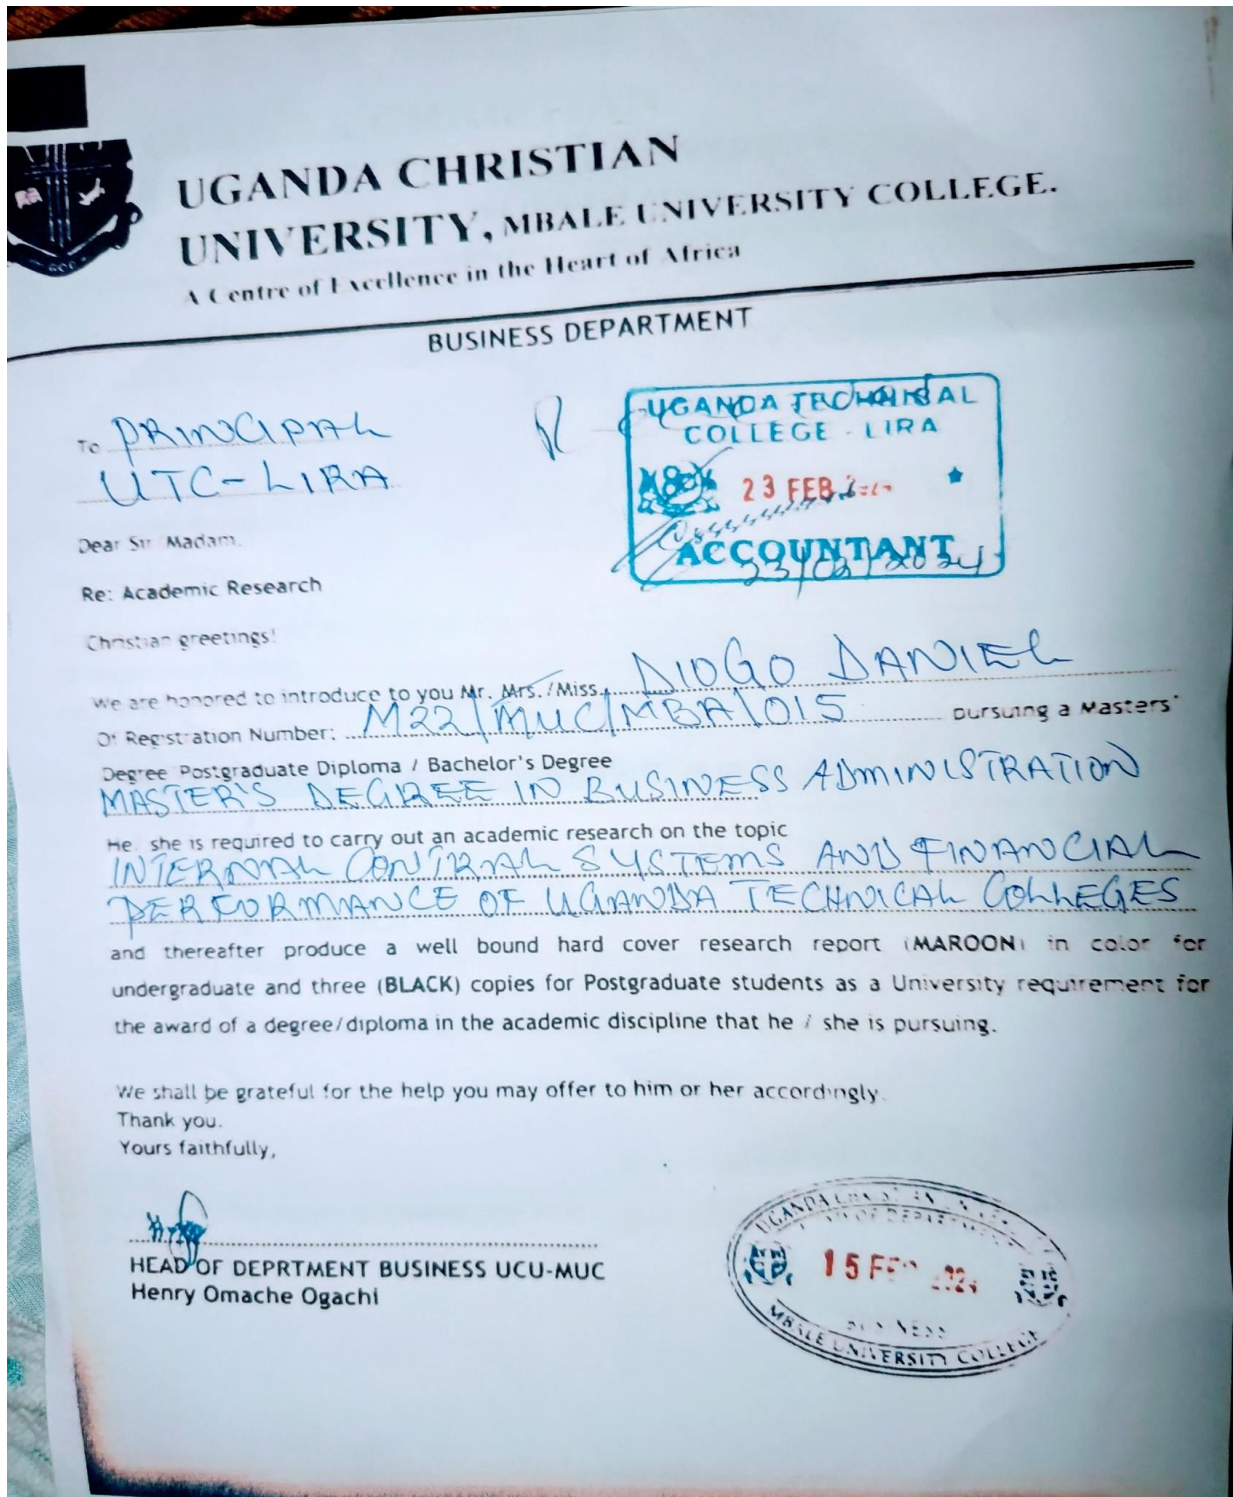 UGANDA CHRISTIAN
UNIVERSITY, MBALE UNIVERSITY COLLEGE.
A Centre of Excellence in the Heart of Africa
BUSINESS DEPARTMENT
To PRINCIPAL
UTC-LIRA
UGANDA TECHNICAL
COLLEGE - LIRA
23 FEB
ACCOUNTANT
23/02/2024
Dear Sir Madam,
Re: Academic Research
Christian greetings!
We are honored to introduce to you Mr. Mrs. /Miss. DIOGO DANIEL
Of Registration Number: M22/MUC/MBA/015 pursuing a Masters'
Degree Postgraduate Diploma / Bachelor's Degree
MASTER'S DEGREE IN BUSINESS ADMINISTRATION
He, she is required to carry out an academic research on the topic
INTERNAL CONTRAL SYSTEMS AND FINANCIAL
PERFORMANCE OF UGANDA TECHNICAL COLLEGES
and thereafter produce a well bound hard cover research report (MAROON) in color for
undergraduate and three (BLACK) copies for Postgraduate students as a University requirement for
the award of a degree/diploma in the academic discipline that he / she is pursuing.
We shall be grateful for the help you may offer to him or her accordingly.
Thank you.
Yours faithfully,
HEAD OF DEPRTMENT BUSINESS UCU-MUC
Henry Omache Ogachi
UGANDA CHRISTIAN
15 FEB 2024
BUSINESS
MBALE UNIVERSITY COLLEGE